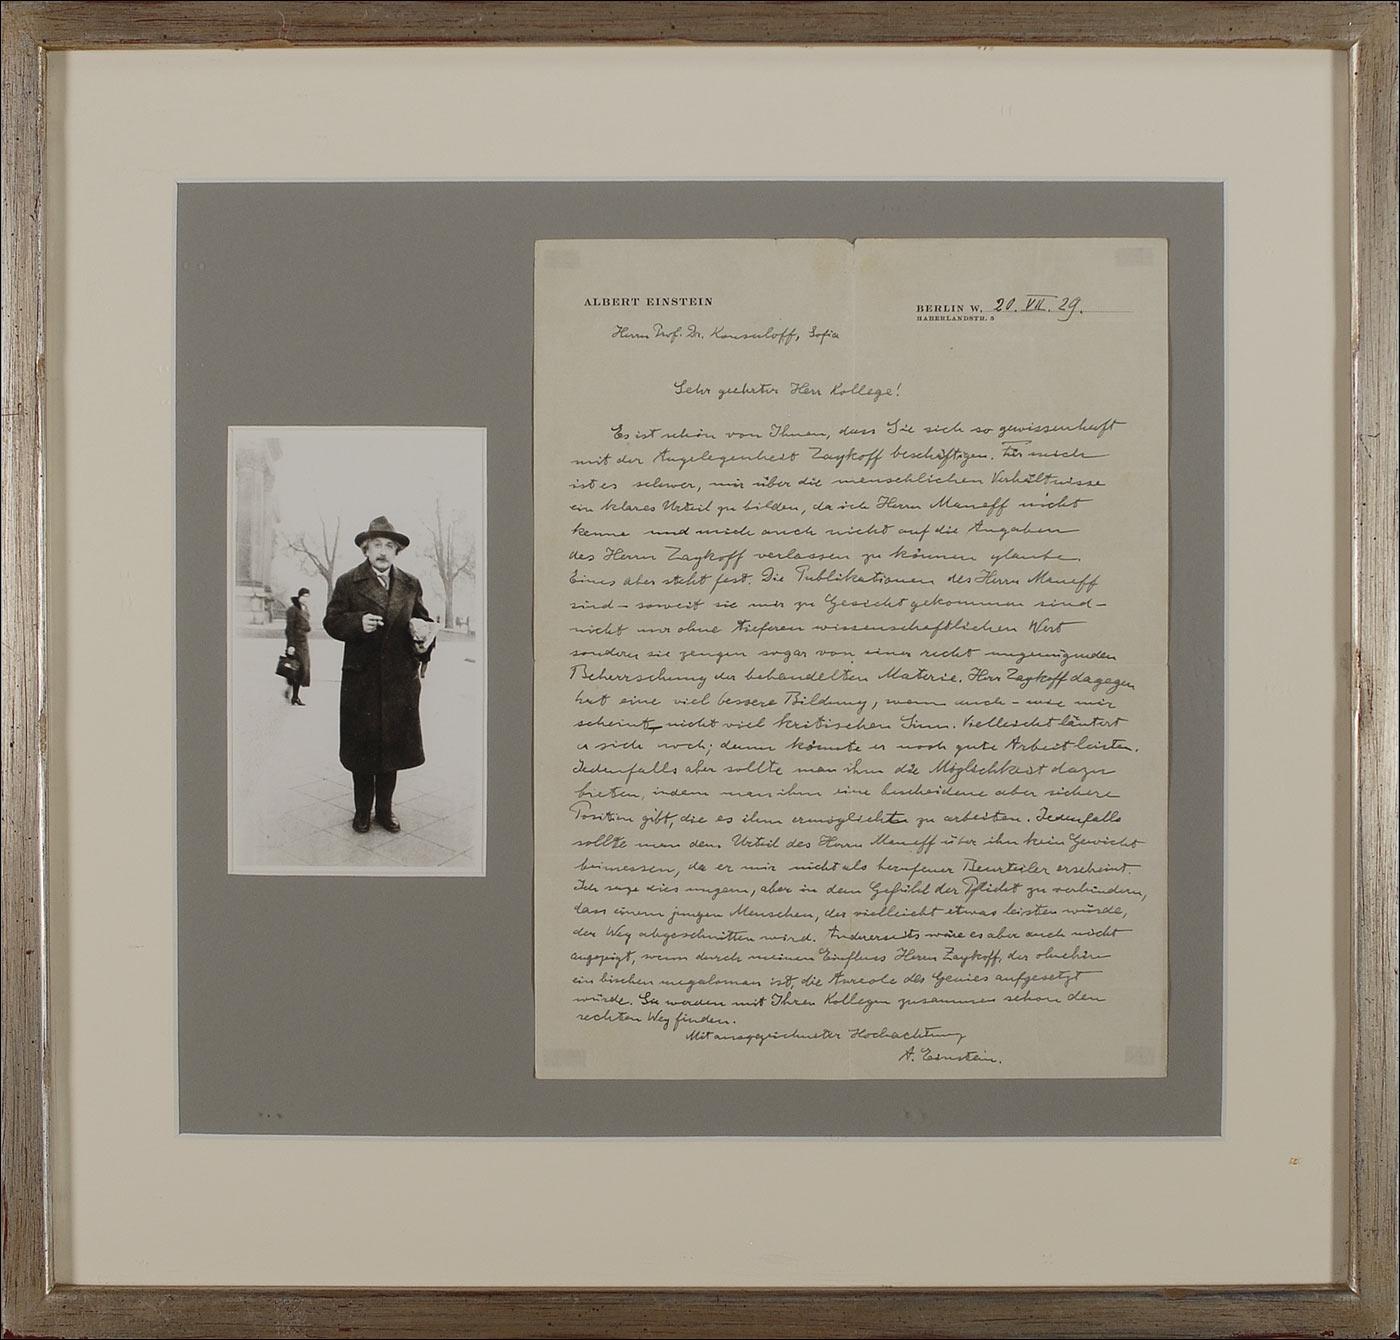 ALBERT EINSTEIN
BERLIN W, 20. VII. 29.
HABERLANDSTR. 5
Herrn Prof. Dr. Konsuloff, Sofia
Sehr geehrter Herr Kollege!
Es ist schön von Ihnen, dass Sie sich so gewissenhaft
mit der Angelegenheit Zaykoff beschäftigen. Für mich
ist es schwer, mir über die menschlichen Verhältnisse
ein klares Urteil zu bilden, da ich Herrn Maneff nicht
kenne und mich auch nicht auf die Angaben
des Herrn Zaykoff verlassen zu können glaube.
Eines aber steht fest. Die Publikationen des Herrn Maneff
sind – soweit sie mir zu Gesicht gekommen sind –
nicht nur ohne tieferen wissenschaftlichen Wert
sondern sie zeugen sogar von einer recht ungenügenden
Beherrschung der behandelten Materie. Herr Zaykoff dagegen
hat eine viel bessere Bildung, wenn auch – wie mir
scheint, nicht viel kritischen Sinn. Vielleicht läutert
er sich noch; dann könnte er noch gute Arbeit leisten.
Jedenfalls aber sollte man ihm die Möglichkeit dazu
bieten, indem man ihm eine bescheidene aber sichere
Position gibt, die es ihm ermöglicht zu arbeiten. Jedenfalls
sollte man dem Urteil des Herrn Maneff über ihn kein Gewicht
beimessen, da er mir nicht als berufener Beurteiler erscheint.
Ich sage dies ungern, aber in dem Gefühl der Pflicht zu verhindern,
dass einem jungen Menschen, der vielleicht etwas leisten würde,
der Weg abgeschnitten wird. Andererseits wäre es aber auch nicht
angezeigt, wenn durch meinen Einfluss Herrn Zaykoff, der ohnehin
ein bischen megaloman ist, die Aureole des Genies aufgesetzt
würde. Sie werden mit Ihren Kollegen zusammen schon den
rechten Weg finden.
Mit ausgezeichneter Hochachtung
A. Einstein.